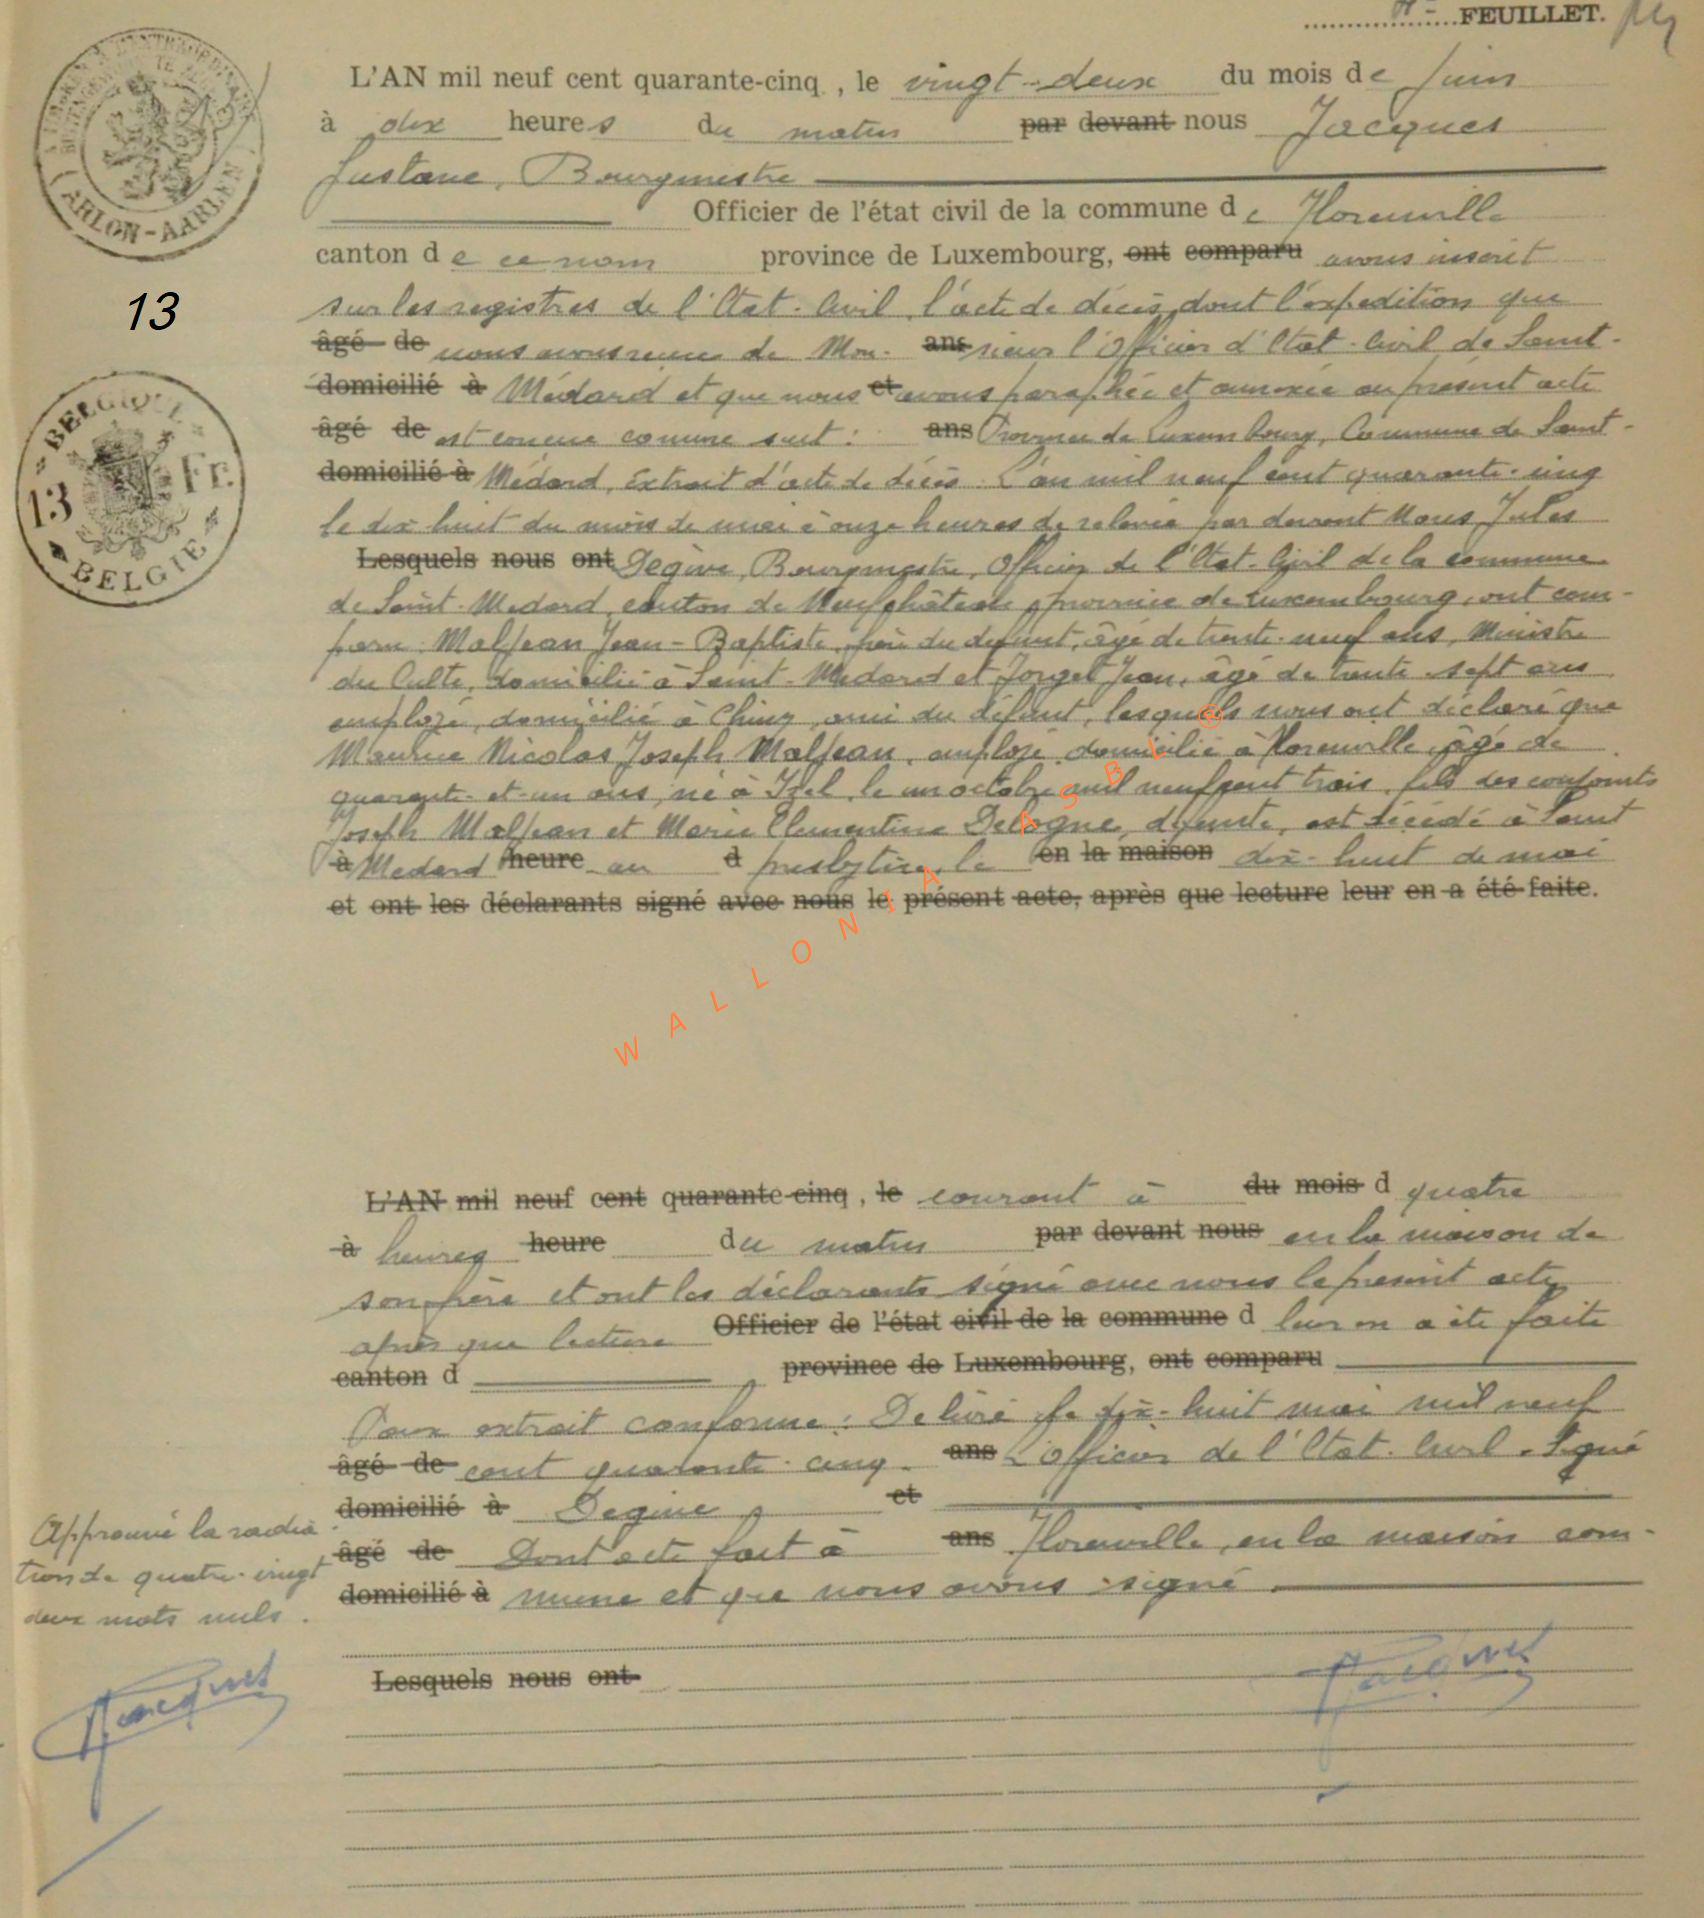 FEUILLET.
L'AN mil neuf cent quarante-cinq, le vingt-deux du mois de juin
à dix heures du matin par devant nous Jacques
Gustave, Bourgmestre
Officier de l'état civil de la commune de Florenville
canton de ce nom province de Luxembourg, ont comparu avons inscrit
sur les registres de l'Etat-Civil, l'acte de décès dont l'expédition que
âgé de nous avons reçue de Mon- ans sieur l'Officier d'Etat-Civil de Saint-
domicilié à Médard et que nous et avons paraphée et annexée au présent acte
âgé de est conçue comme suit: ans Province de Luxembourg, Commune de Saint-
domicilié à Médard, Extrait d'acte de décès. L'an mil neuf cent quarante-cinq
le dix huit du mois de mai à onze heures de relevée par devant Nous Jules
Lesquels nous ont Degive, Bourgmestre, Officier de l'Etat-Civil de la commune
de Saint-Médard, canton de Neufchâteau, province de Luxembourg, ont com-
paru: Maljean Jean-Baptiste, père du défunt, âgé de trente-neuf ans, Ministre
du Culte, domicilié à Saint-Médard et Jorget Jean, âgé de trente-sept ans
employé, domicilié à Chiny, ami du défunt, lesquels nous ont déclaré que
Maurice Nicolas Joseph Maljean, employé, domicilié à Florenville, âgé de
quarante-et-un ans, né à Izel, le un octobre mil neuf cent trois, fils des conjoints
Joseph Maljean et Marie Clementine Delogne, défunte, est décédé à Saint
à Médard heure au d presbytère, le en la maison dix-huit de mai
et ont les déclarants signé avec nous le présent acte, après que lecture leur en a été faite.
L'AN mil neuf cent quarante-cinq, le courant à du mois d quatre
à heures heure du matin par devant nous en la maison de
son père et ont les déclarants signé avec nous le présent acte
après que lecture Officier de l'état civil de la commune d leur en a été faite
canton d province de Luxembourg, ont comparu
Pour extrait conforme: Délivré le dix-huit mai mil neuf
âgé de cent quarante-cinq. ans L'Officier de l'Etat-Civil. Signé
domicilié à Degive et
âgé de Dont acte fait à ans Florenville, en la maison com-
domicilié à mune et que nous avons signé.
Lesquels nous ont
Jacques
Approuvé la radia
tion de quatre-vingt
deux mots nuls.
Jacques
ARLON-AARLEN
13
BELGIQUE
13 Fr.
BELGIE
WALLONIA ASBL @